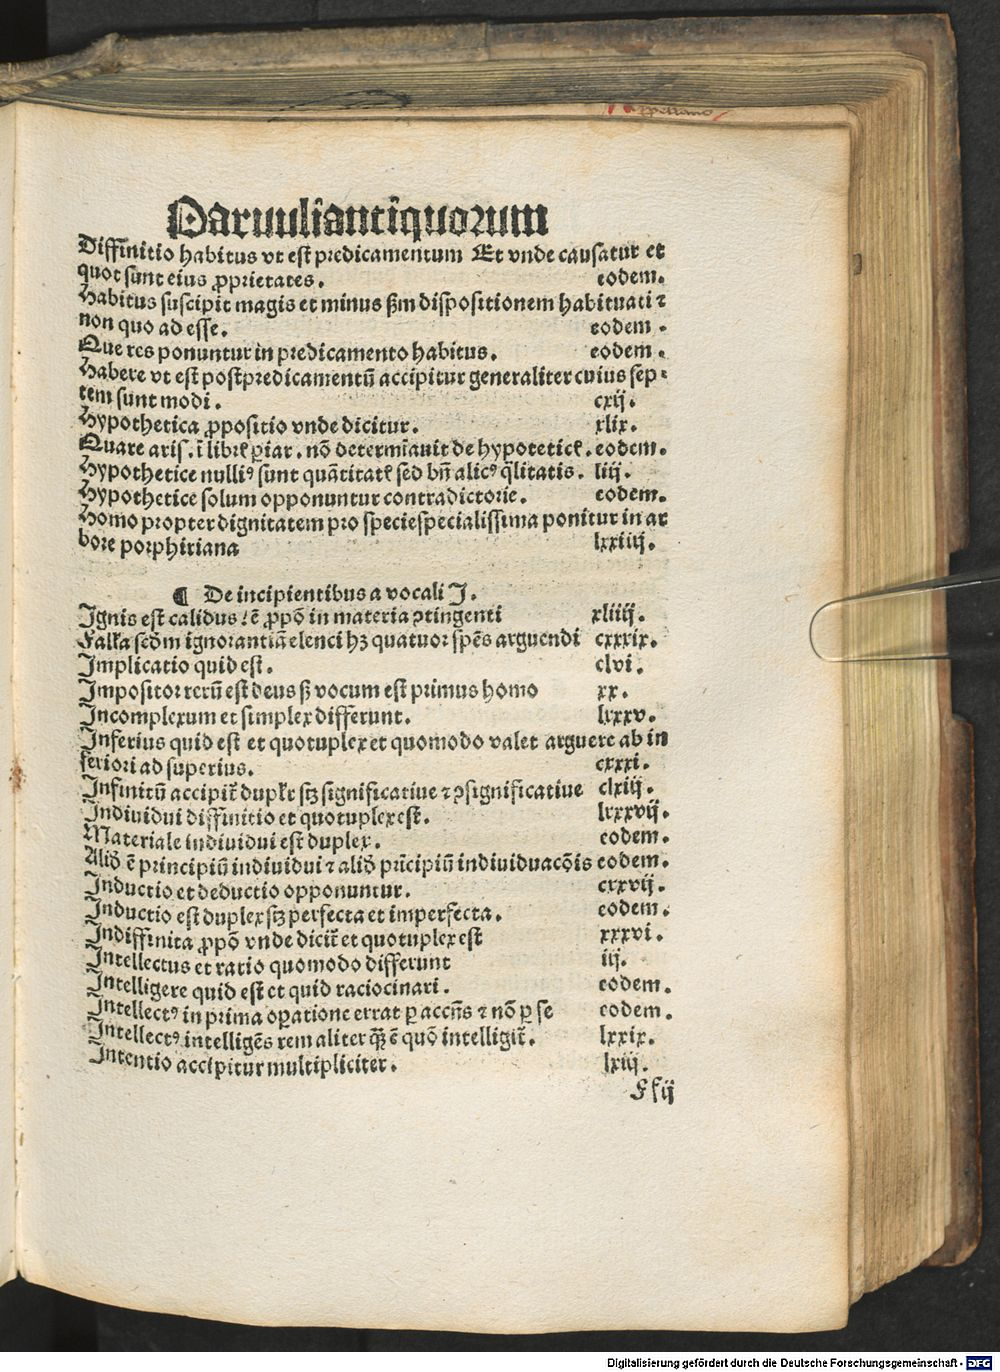 Paruuli antiquorum
Diffinitio habitus vt est predicamentum Et vnde causatur et
quot sunt eius ꝓprietates. eodem.
Habitus suscipit magis et minus ẜm dispositionem habituati ⁊
non quo ad esse. eodem.
Que res ponuntur in predicamento habitus. eodem.
Habere vt est postpredicamentū accipitur generaliter cuius sep⸗
tem sunt modi. cxij.
Hypothetica ꝓpositio vnde dicitur. xlix.
Quare aris. ī librꝭ ꝑiar. nō determīauit de hypoteticꝭ. eodem.
Hypothetice nulliꝰ sunt quātitatꝭ sed bn̄ alicꝰ q̄litatis. liij.
Hypothetice solum opponuntur contradictorie. eodem.
Homo propter dignitatem pro speciespecialissima ponitur in ar
bore porphiriana lxxiiij.
¶ De incipientibus a vocali I.
Ignis est calidus: ē ꝓpō in materia ꝯtingenti xliiij.
Fallꝭa scd̄m ignorantiā elenci hꝫ quatuor spēs arguendi cxxxix.
Implicatio quid est. clvi.
Impositor rerū est deus ẜ vocum est primus homo xx.
Incomplexum et simplex differunt. lxxxv.
Inferius quid est et quotuplex et quomodo valet arguere ab in
feriori ad superius. cxxxi.
Infinitū accipit᷑ duplr̄ scꝫ significatiue ⁊ ꝯsignificatiue clxiij.
Indiuidui diffinitio et quotuplex est. lxxxvij.
Materiale indiuidui est duplex. eodem.
Aliđ ē principiū indiuidui ⁊ aliđ prīcipiū indiuiduacōis eodem.
Inductio et deductio opponuntur. cxxvij.
Inductio est duplex scꝫ perfecta et imperfecta. eodem.
Indiffinita ꝓpō vnde dicit᷑ et quotuplex est xxxvi.
Intellectus et ratio quomodo differunt iij.
Intelligere quid est et quid raciocinari. eodem.
Intellectꝰ in prima oꝑatione errat ꝑ accn̄s ⁊ nō ꝑ se eodem.
Intellectꝰ intelligēs rem aliter qꝫ̄ ē quō intelligit᷑. lxxix.
Intentio accipitur multipliciter. lxiij.
Ff ij
Digitalisierung gefördert durch die Deutsche Forschungsgemeinschaft - DFG